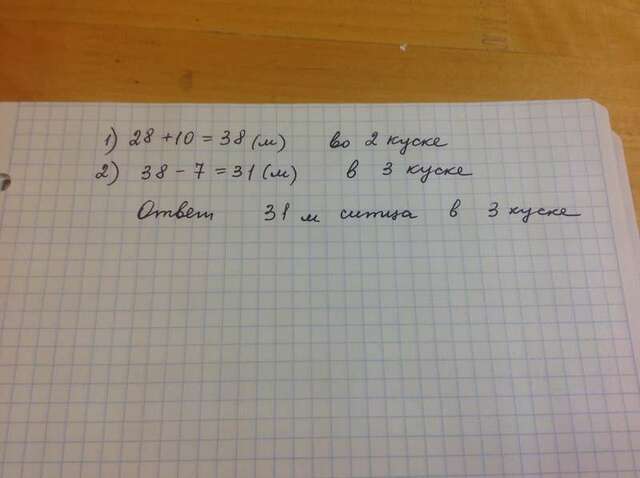 1) 28 + 10 = 38 (м) во 2 куске
2) 38 - 7 = 31 (м) в 3 куске
Ответ 31 м ситца в 3 куске